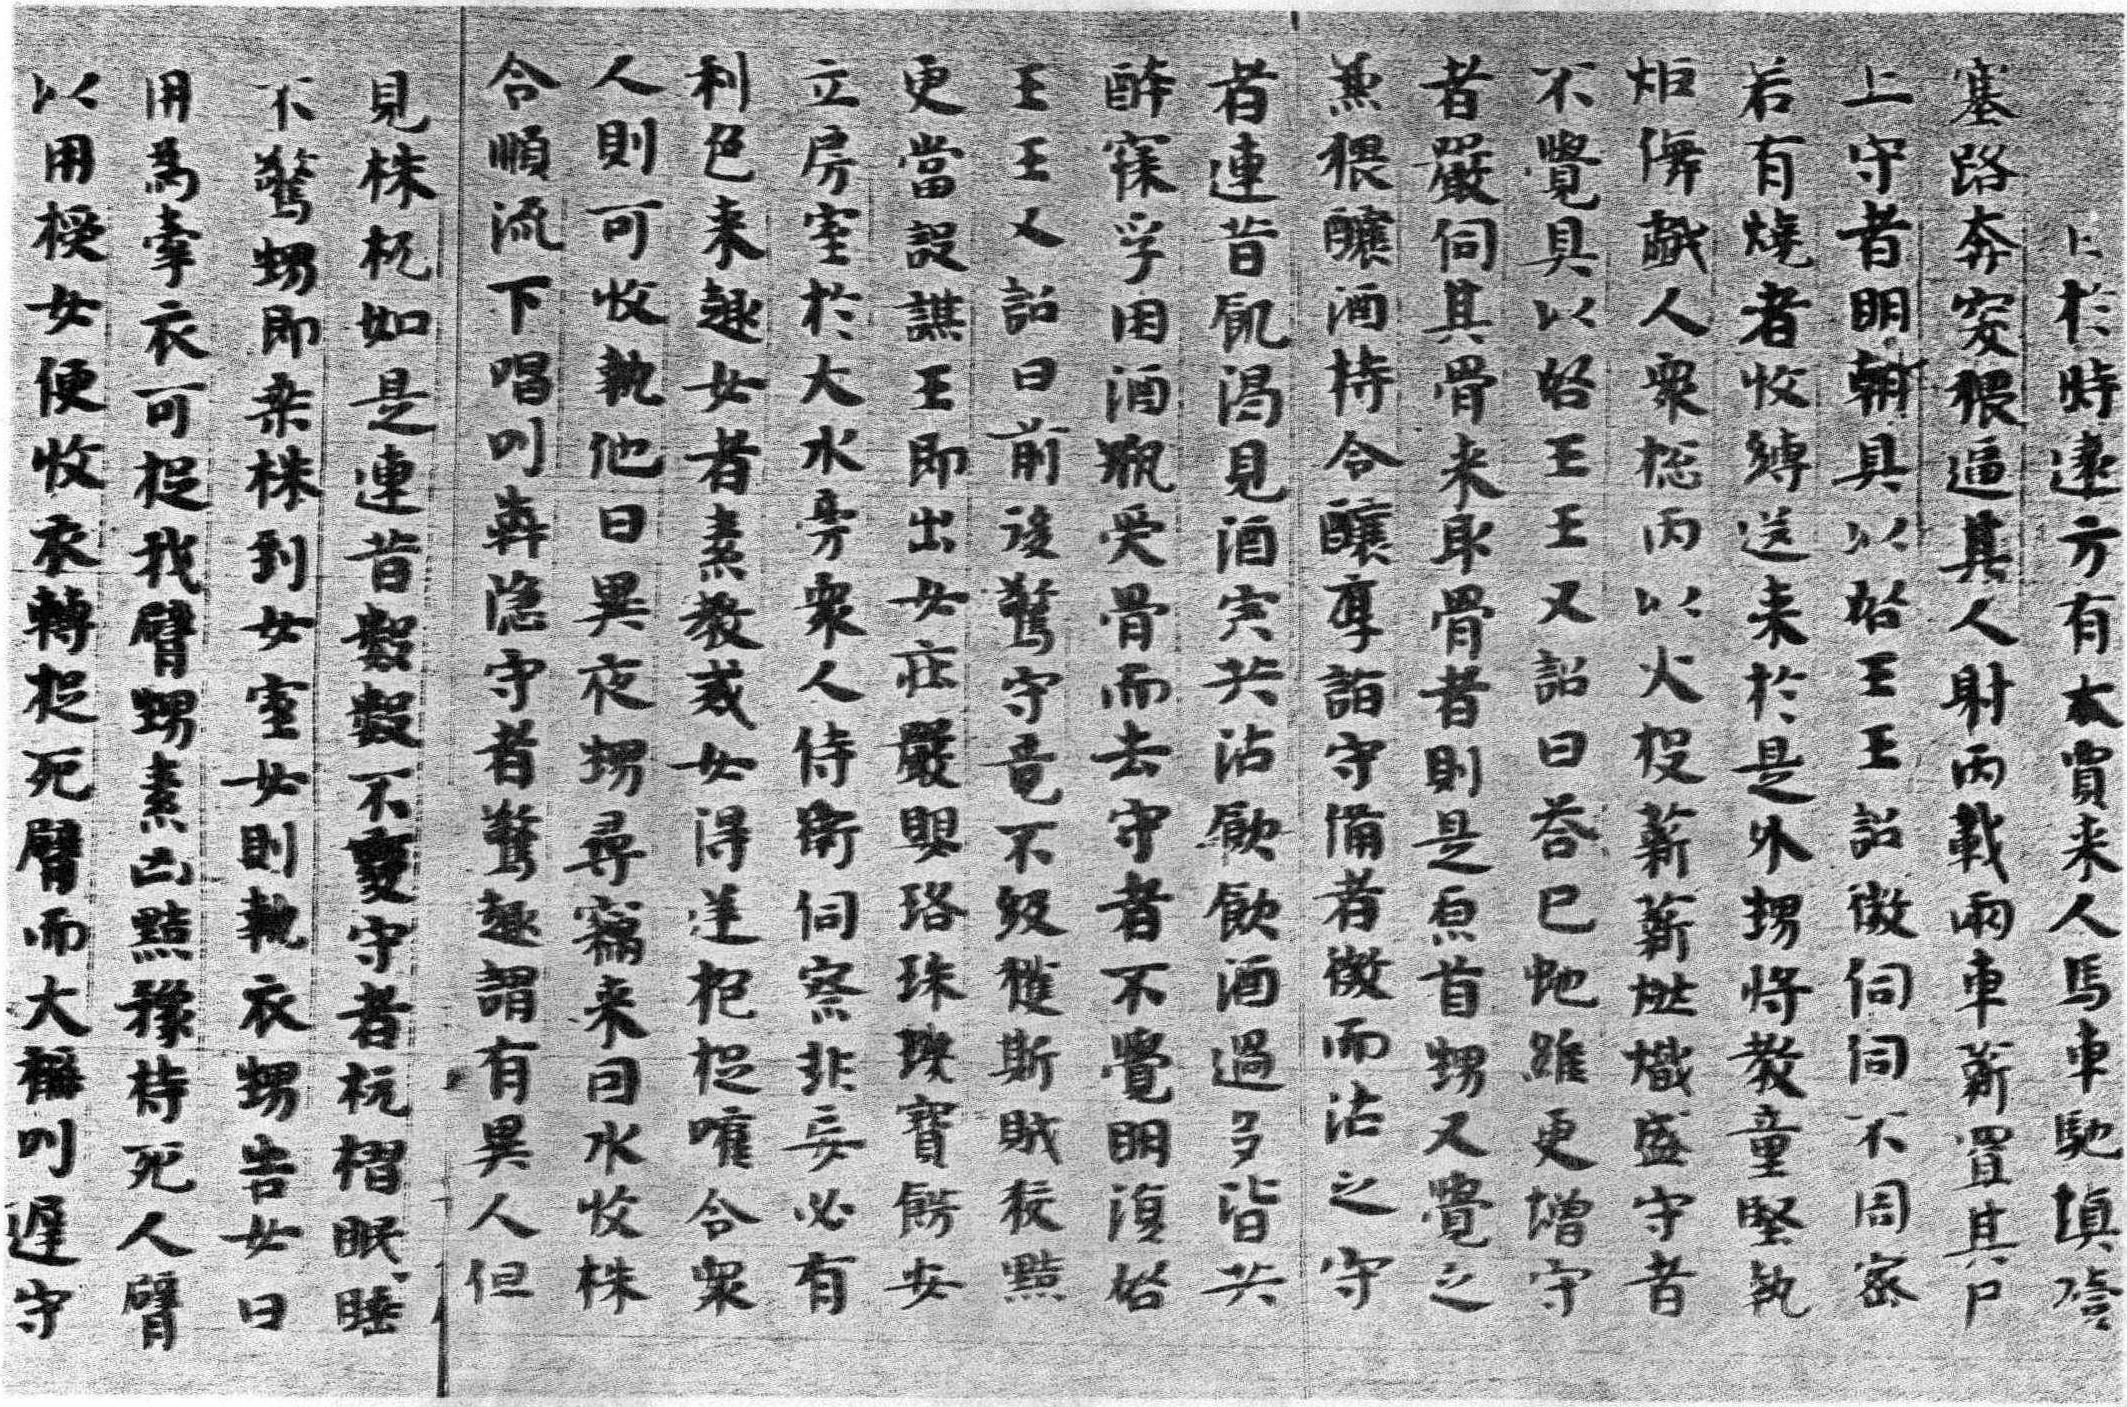 上於時遠方有大賈来人馬車馳填噎
塞路奔突猥逼其人射丙載兩車薪置其尸
上守者明朝具以啓王王詔微伺伺不周密
若有燒者收縛送来於是外甥将教童竪執
炬儛戱人衆捴丙以火投薪薪燃熾盛守者
不覺具以啓王王又詔曰荼已虵維更增守
者嚴伺其骨来取骨者則是原首甥又覺之
兼猥釀酒特令釀厚詣守備者微而沽之守
者連昔飢渴見酒宍共沽飲飲酒過多皆共
醉寐孚因酒瓶受骨而去守者不覺明復啓
王王又詔曰前後警守竟不級獲斯賊狡黠
更當設謀王即出女莊嚴嬰珞珠璣寶飾安
立房室於大水旁衆人侍衛伺察非妄必有
利色来趣女者素教或女得逆抱捉嚾令衆
人則可收執他日異夜甥尋竊来因水收株
令順流下唱叫犇隱守者驚趣謂有異人但
見株杌如是連昔數數不變守者杭槢眠睡
不驚甥即乘株到女室女則執衣甥告女曰
用為牽衣可捉我臂甥素凶黠豫持死人臂
以用授女便收衣轉捉死臂而大稱叫遲守